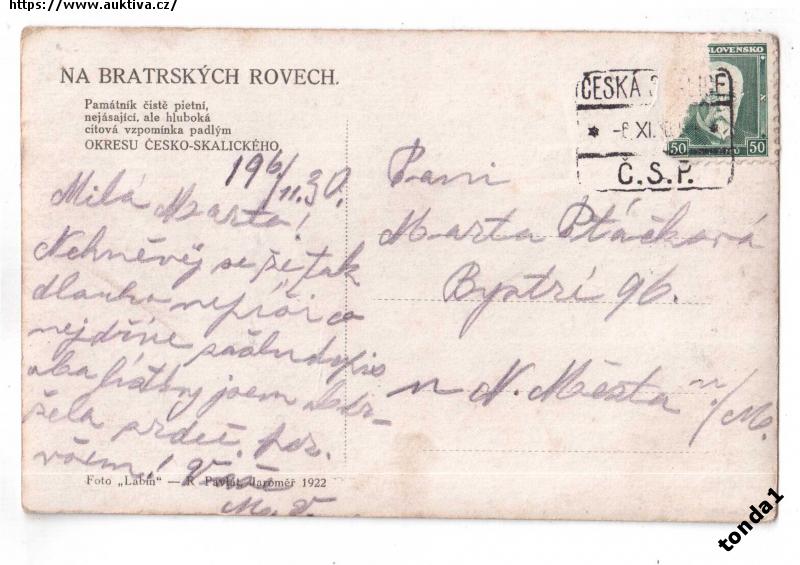 https://www.auktiva.cz/
NA BRATRSKÝCH ROVECH.
Památník čistě pietní,
nejásající, ale hluboká
citová vzpomínka padlým
OKRESU ČESKO-SKALICKÉHO.
SLOVENSKO
50 50
ČESKÁ
-6.XI.
Č.S.P.
19 6/11.30.
Milá Marto!
Nehněvej se že tak
dlouho nepíši co
nejdříve dopis
jsem
srdeč. poz.
všem!
M. V.
Paní
Marta Ptáčková
Bystré 96.
u N. Města n/M.
Foto „Labin" — R. Pavlát, Jaroměř 1922
tonda1